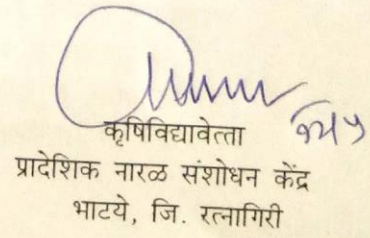 कृषिविद्यावेत्ता
प्रादेशिक नारळ संशोधन केंद्र
भाटये, जि. रत्नागिरी